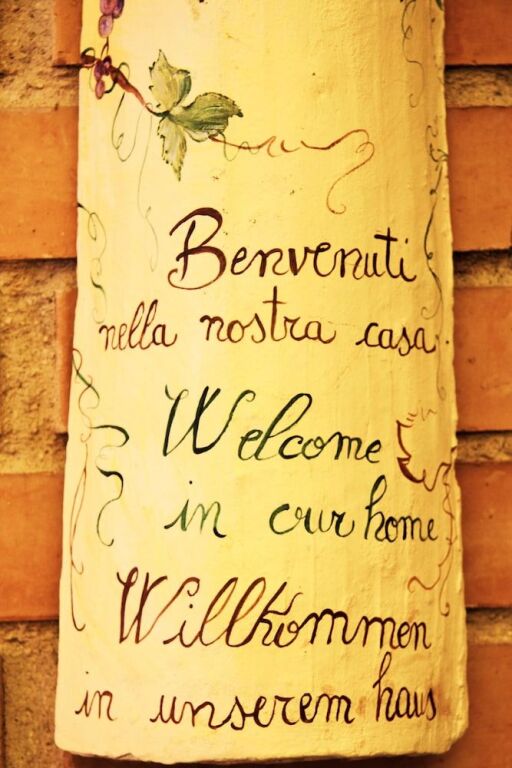 Benvenuti
nella nostra casa
Welcome
in our home
Willkommen
in unserem haus